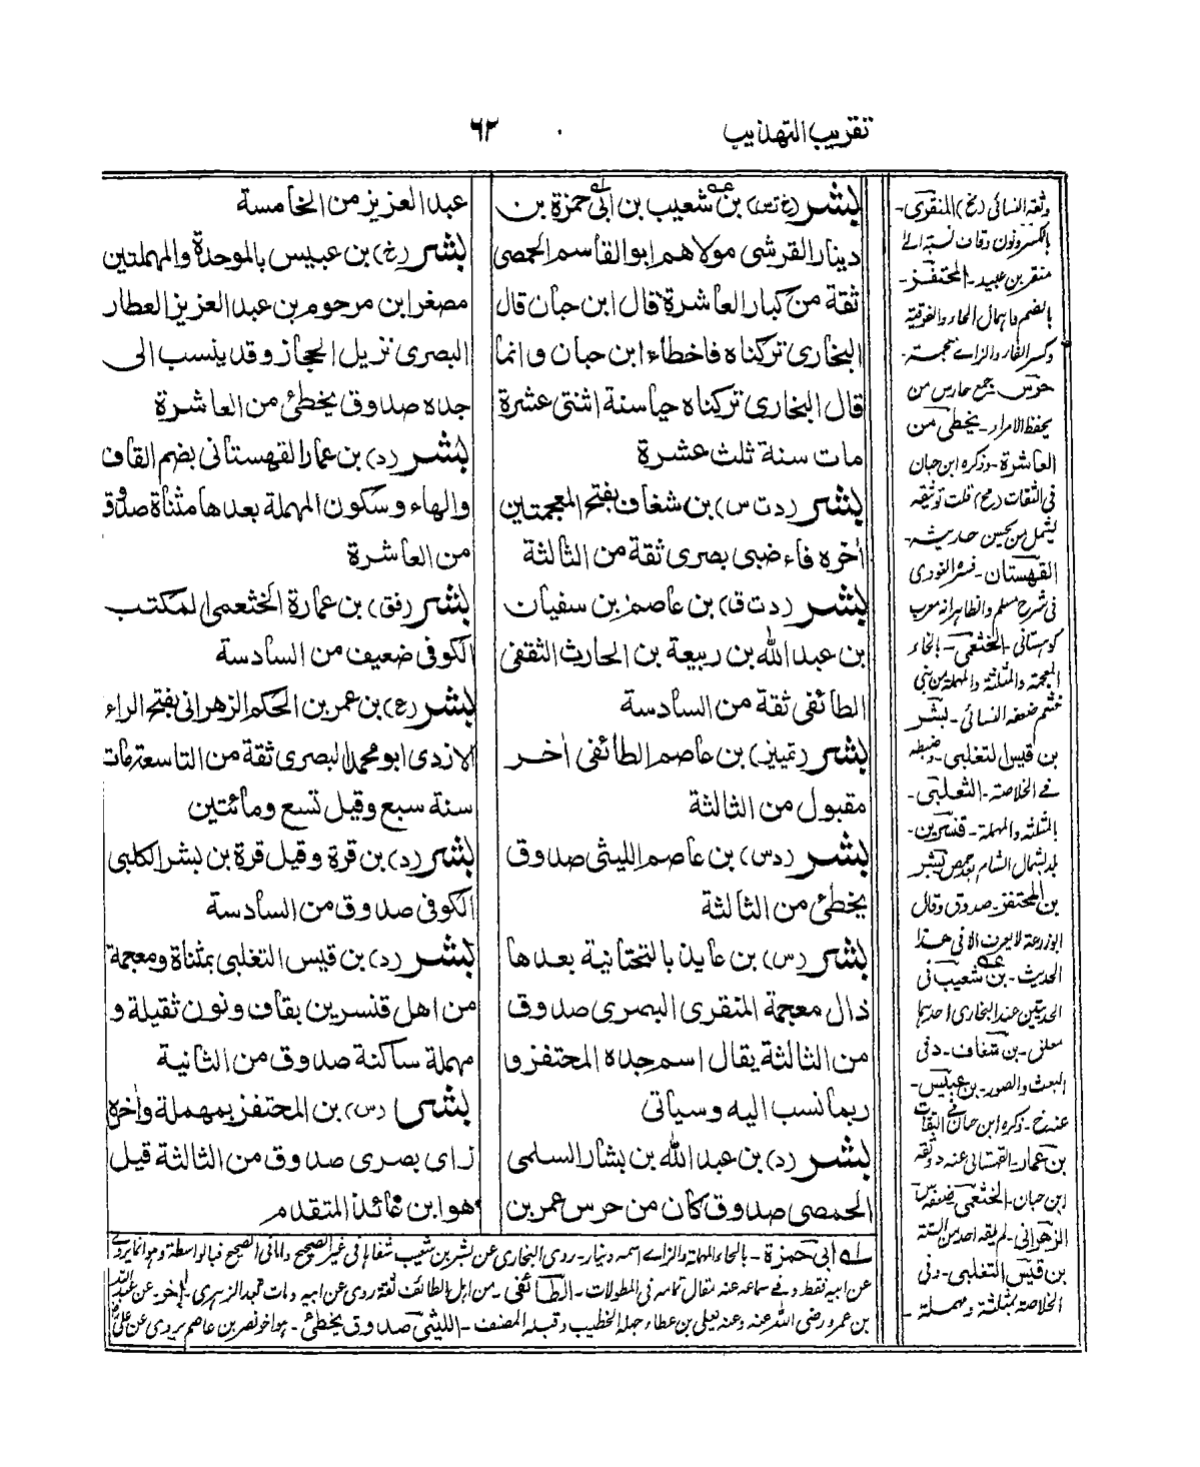 تقريب التهذيب
٦٢
بشر (خ ت س) بن شعيب بن ابى حمزة بن
دينار القرشى مولاهم ابو القاسم الحمصى
ثقة من كبار العاشرة قال ابن حبان قال
البخارى تركناه فاخطاء ابن حبان وانما
قال البخارى تركناه حيا سنة اثنتى عشرة
مات سنة ثلث عشرة
بشر (د ت س) بن شغاف بفتح المعجمتين
اخره فاء ضبى بصرى ثقة من الثالثة
بشر (د ت ق) بن عاصم بن سفيان
بن عبد الله بن ربيعة بن الحارث الثقفى
الطائفى ثقة من السادسة
بشر (تمييز) بن عاصم الطائفى اخر
مقبول من الثالثة
بشر (د س) بن عاصم الليثى صدوق
يخطئ من الثالثة
بشر (س) بن عايذ بالتحتانية بعدها
ذال معجمة المنقرى البصرى صدوق
من الثالثة يقال اسم جده المحتفز و
ربما نسب اليه وسياتى
بشر (د) بن عبد الله بن بشار السلمى
الحمصى صدوق كان من حرس عمر بن
عبد العزيز من الخامسة
بشر (خ) بن عبيس بالموحدة والمهملتين
مصغر ابن مرحوم بن عبد العزيز العطار
البصرى نزيل الحجاز وقد ينسب الى
جده صدوق يخطئ من العاشرة
بشر (د) بن عمار القهستانى بضم القاف
والهاء وسكون المهملة بعدها مثناة صدوق
من العاشرة
بشر (فق) بن عمارة الخثعمى المكتب
الكوفى ضعيف من السادسة
بشر (ع) بن عمر بن الحكم الزهرانى بفتح الراء
الازدى ابو محمد البصرى ثقة من التاسعة مات
سنة سبع وقيل تسع ومائتين
بشر (د) بن قرة وقيل قرة بن بشر الكلبى
الكوفى صدوق من السادسة
بشر (د) بن قيس التغلبى بمثناة ومعجمة
من اهل قنسرين بقاف ونون ثقيلة و
مهملة ساكنة صدوق من الثانية
بشر (س) بن المحتفز بمهملة واخره
زاى بصرى صدوق من الثالثة قيل
هو ابن عائذ المتقدم
وثقه النسائى (خ) المنقرى-
بالكسر ونون وقاف نسبة الى
منقر بن عبيد-المحتفز-
بالضم فاهمال الحاء والفوقية
وكسر الفاء والزاے معجمة-
حرس جمع حارس من
يحفظ الامراء-يخطى من
العاشرة-وذكره ابن حبان
فى الثقات (مح) قلت توثيقه
يشمل من يحسن حديثه-
القهستان-فسره النووى
فى شرح مسلم والظاهر انه معرب
كوهستانى-الخثعمى-بالخاء
المعجمة والمثلثة والمهملة من بنى
خثعم ضعفه النسائى-بشر
بن قيس التغلبى-وضبطه
فے الخلاصة-الثعلبى-
بالمثلثة والمهملة-قنسرين-
بلد بشمال الشام بعد حمص بشر
بن المحتفز-صدوق وقال
ابوزرعة لا يعرف الا فى هذا
الحديث-بن شعيب فى
الحديثين عند البخارى احدهما
معلق-بن شغاف-د فى
البعث والصور-بن عبيس-
عنه خ-ذكره ابن حبان فى الثقات
بن عمار-القهستانى عنه د وثقه
ابن حبان-الخثعمى ضعفه س
الزهرانى-لم يقه احد من الستة
بن قيس التغلبى-د فى
الخلاصة بمثلثة ومهملة-
له ابى حمزة-بالحاء المهملة والزاے اسمه دينار-روى البخارى عن بشر بن شعيب شفاها فى غير الصحيح واما فى الصحيح فبالواسطة وهو انما يروے
عن ابيه فقط وفے سماعه عنه مقال تمامه فى المطولات-الطائفى-من اهل الطائف ثقة روى عن ابيه ومات بعد الزهرى-اخر-عن عبد الله
بن عمرو رضى الله عنه وعنه يعلى بن عطاء جهله الخطيب وقبله المصنف-الليثى صدوق يخطئ-هو اخو نصر بن عاصم يروى عن على